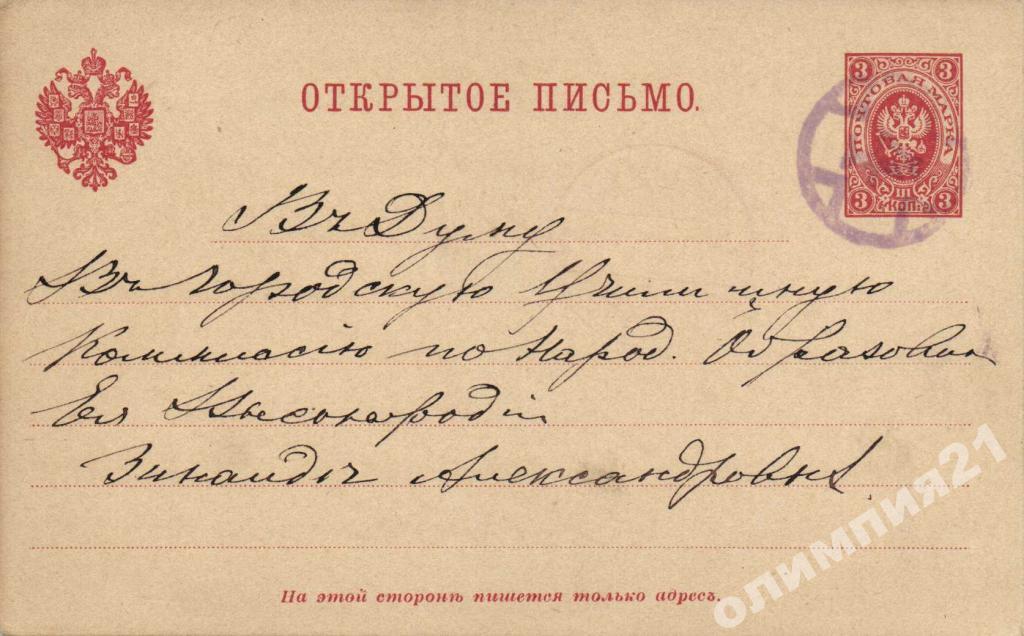 ОТКРЫТОЕ ПИСЬМО.
3 3
ПОЧТОВАЯ МАРКА
3 КОП. 3
Въ Думу
Въ Городскую Училищную
Коммиссію по Народ. Образован
Ея Высокородію
Зинаидѣ Александровнѣ
На этой сторонѣ пишется только адресъ.
олимпия21